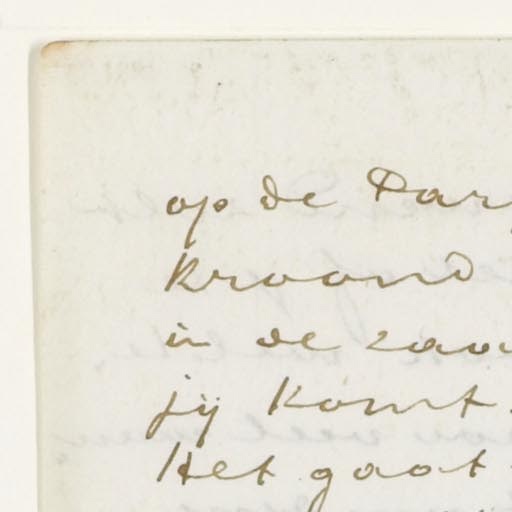 op de Par
kroond
in de zaa
jij komt.
Het gaat